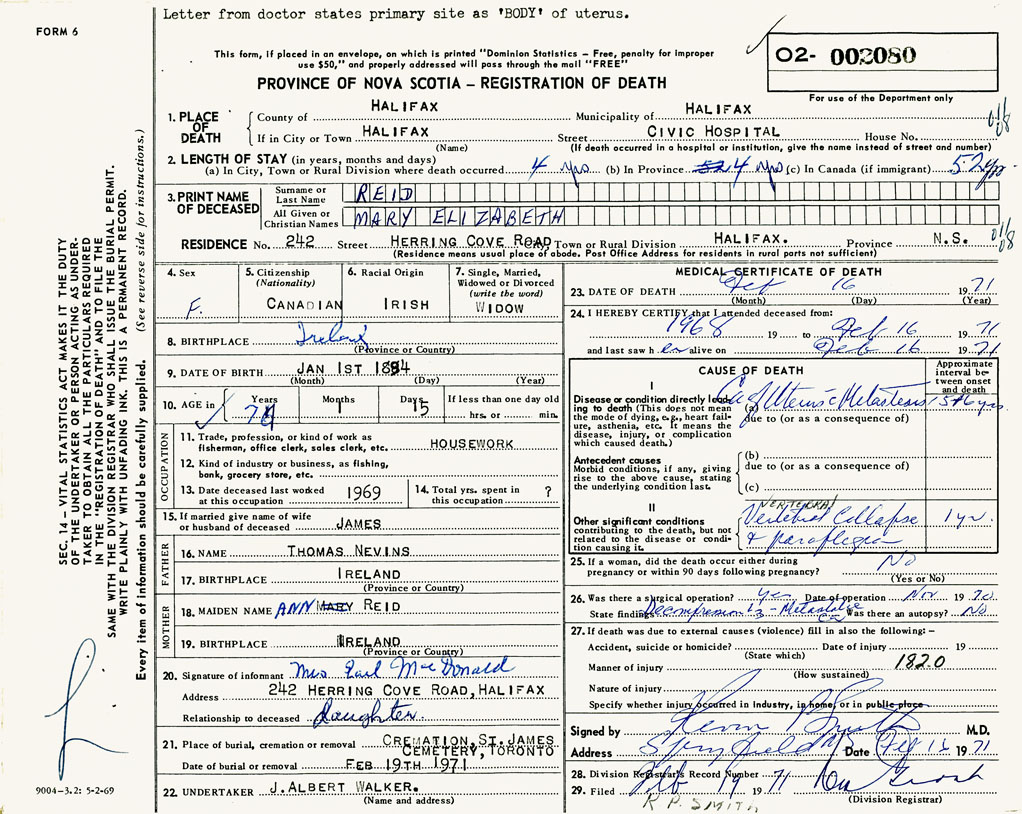 Letter from doctor states primary site as 'BODY' of uterus.
FORM 6
This form, if placed in an envelope, on which is printed "Dominion Statistics – Free, penalty for improper
use $50," and properly addressed will pass through the mail "FREE"
02- 002080
PROVINCE OF NOVA SCOTIA – REGISTRATION OF DEATH
For use of the Department only
1. PLACE OF DEATH
County of HALIFAX Municipality of HALIFAX
If in City or Town HALIFAX Street CIVIC HOSPITAL House No.
(Name) (If death occurred in a hospital or institution, give the name instead of street and number)
2. LENGTH OF STAY (in years, months and days)
(a) In City, Town or Rural Division where death occurred 4 yrs (b) In Province 4 yrs (c) In Canada (if immigrant) 52 yrs
3. PRINT NAME OF DECEASED
Surname or Last Name REID
All Given or Christian Names MARY ELIZABETH
RESIDENCE No. 242 Street HERRING COVE ROAD Town or Rural Division HALIFAX. Province N.S.
(Residence means usual place of abode. Post Office Address for residents in rural parts not sufficient)
4. Sex
F.
5. Citizenship
(Nationality)
CANADIAN
6. Racial Origin
IRISH
7. Single, Married,
Widowed or Divorced
(write the word)
WIDOW
8. BIRTHPLACE Ireland
(Province or Country)
9. DATE OF BIRTH JAN 1ST
(Month) (Day) (Year)
10. AGE in
Years
Months 1
Days 15
If less than one day old
hrs. or min.
OCCUPATION
11. Trade, profession, or kind of work as
fisherman, office clerk, sales clerk, etc. HOUSEWORK
12. Kind of industry or business, as fishing,
bank, grocery store, etc.
13. Date deceased last worked
at this occupation 1969
14. Total yrs. spent in
this occupation ?
15. If married give name of wife
or husband of deceased JAMES
FATHER
16. NAME THOMAS NEVINS
17. BIRTHPLACE IRELAND
(Province or Country)
MOTHER
18. MAIDEN NAME ANN MARY REID
19. BIRTHPLACE IRELAND
(Province or Country)
20. Signature of informant Mrs Earl MacDonald
Address 242 HERRING COVE ROAD, HALIFAX
Relationship to deceased daughter
21. Place of burial, cremation or removal CREMATION, ST. JAMES
CEMETERY, TORONTO
Date of burial or removal FEB 19TH 1971
22. UNDERTAKER J. ALBERT WALKER.
(Name and address)
MEDICAL CERTIFICATE OF DEATH
23. DATE OF DEATH Feb 16 1971
(Month) (Day) (Year)
24. I HEREBY CERTIFY that I attended deceased from:
1968 19 to Feb 16 1971
and last saw her alive on Feb 16 1971
CAUSE OF DEATH
Approximate
interval be-
tween onset
and death
I
Disease or condition directly lead-
ing to death (This does not mean
the mode of dying, e.g., heart fail-
ure, asthenia, etc. It means the
disease, injury, or complication
which caused death.)
(a) Ca of Uterus c Metastasis
due to (or as a consequence of)
Antecedent causes
Morbid conditions, if any, giving
rise to the above cause, stating
the underlying condition last.
(b)
due to (or as a consequence of)
(c)
II
Other significant conditions
contributing to the death, but not
related to the disease or condi-
tion causing it.
VERTEBRAL
Vertebral Collapse 1 yr.
+ paraplegia
25. If a woman, did the death occur either during
pregnancy or within 90 days following pregnancy? No
(Yes or No)
26. Was there a surgical operation? yes Date of operation Nov 1970
State findings Decompression L3 - Metastatic Ca Was there an autopsy? No
27. If death was due to external causes (violence) fill in also the following:–
Accident, suicide or homicide? Date of injury 19
(State which)
Manner of injury 1820
(How sustained)
Nature of injury
Specify whether injury occurred in industry, in home, or in public place
Signed by Kevin Smith M.D.
Address Spryfield Date Feb 16 1971
28. Division Registrar's Record Number
29. Filed Feb 19 1971
(Division Registrar)
R P. SMITH
SEC. 14 – VITAL STATISTICS ACT MAKES IT THE DUTY
OF THE UNDERTAKER OR PERSON ACTING AS UNDER-
TAKER TO OBTAIN ALL THE PARTICULARS REQUIRED
IN THE "REGISTRATION OF DEATH" AND TO FILE THE
SAME WITH THE DIVISION REGISTRAR WHO SHALL ISSUE THE BURIAL PERMIT.
WRITE PLAINLY WITH UNFADING INK. THIS IS A PERMANENT RECORD.
Every item of information should be carefully supplied. (See reverse side for instructions.)
9004-3.2: 5-2-69